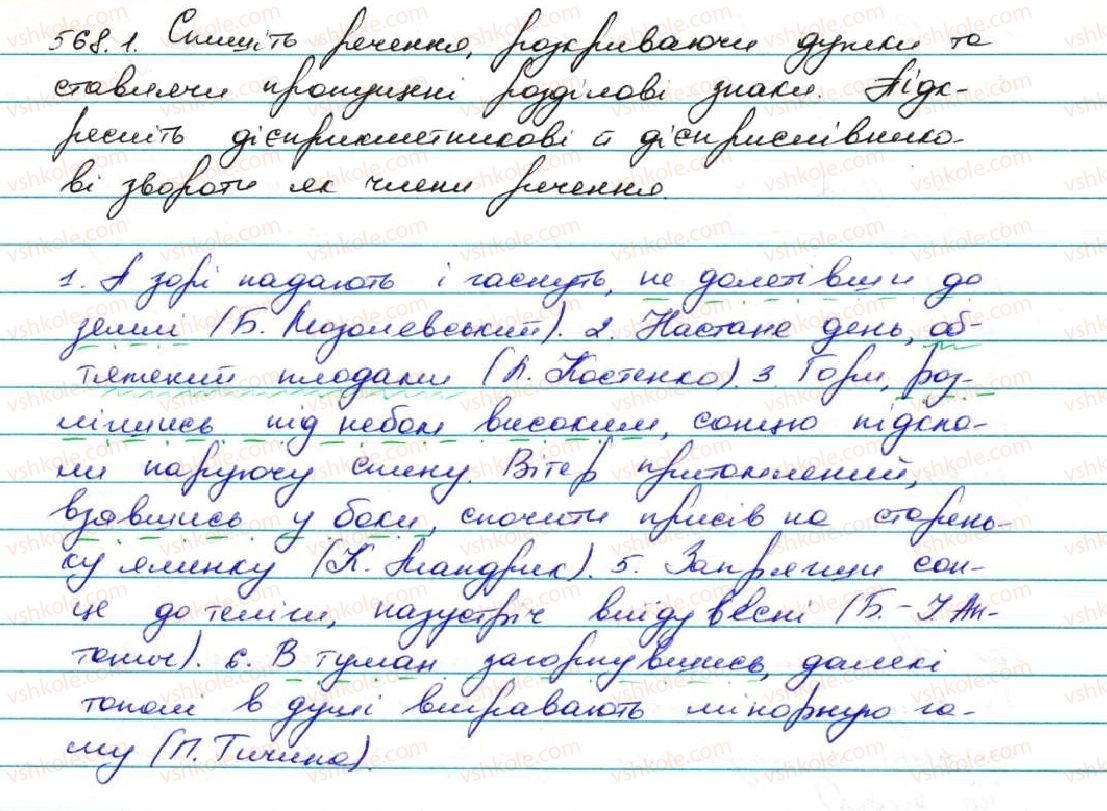 568.1. Спишіть речення, розкриваючи дужки та
ставлячи пропущені розділові знаки. Підк-
ресліть дієприкметникові й дієприслівнико-
ві звороти як члени речення.
1. А зорі падають і гаснуть, не долетівши до
землі (Б. Мозолевський). 2. Настане день, об-
тяжений плодами (Л. Костенко). 3. Гори, роз-
млівшись під небом високим, сонцю підкла-
ли паруючу спину. Вітер притомлений,
взявшись у боки, спочити присів на старень-
ку ялинку (К. Мандрик). 5. Запрягши сон-
це до теліги, назустріч виїду весні (Б.-І. Ан-
тонич). 6. В туман загорнувшись, далекі
тополі в душі вигравають мінорную га-
му (П. Тичина).